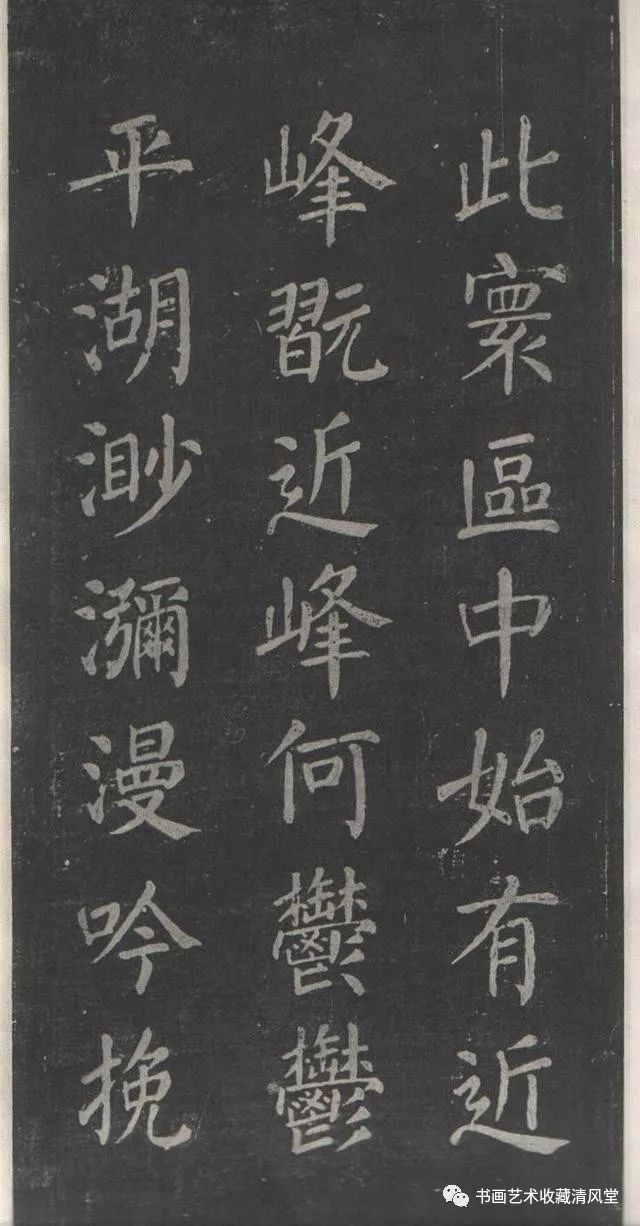 此寰區中始有近
峰翫近峰何鬱鬱
平湖渺瀰漫吟挽
书画艺术收藏清风堂